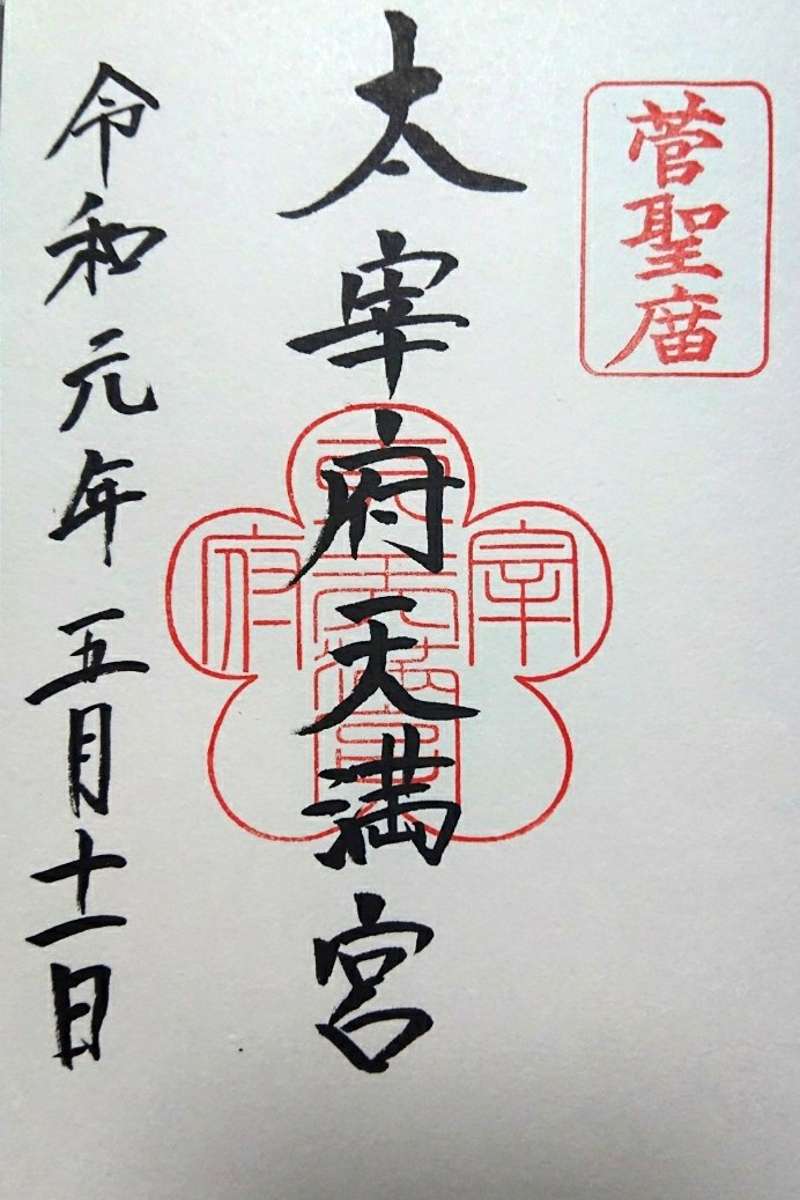 菅聖庿
太宰府天満宮
宰
府
令和元年五月十一日